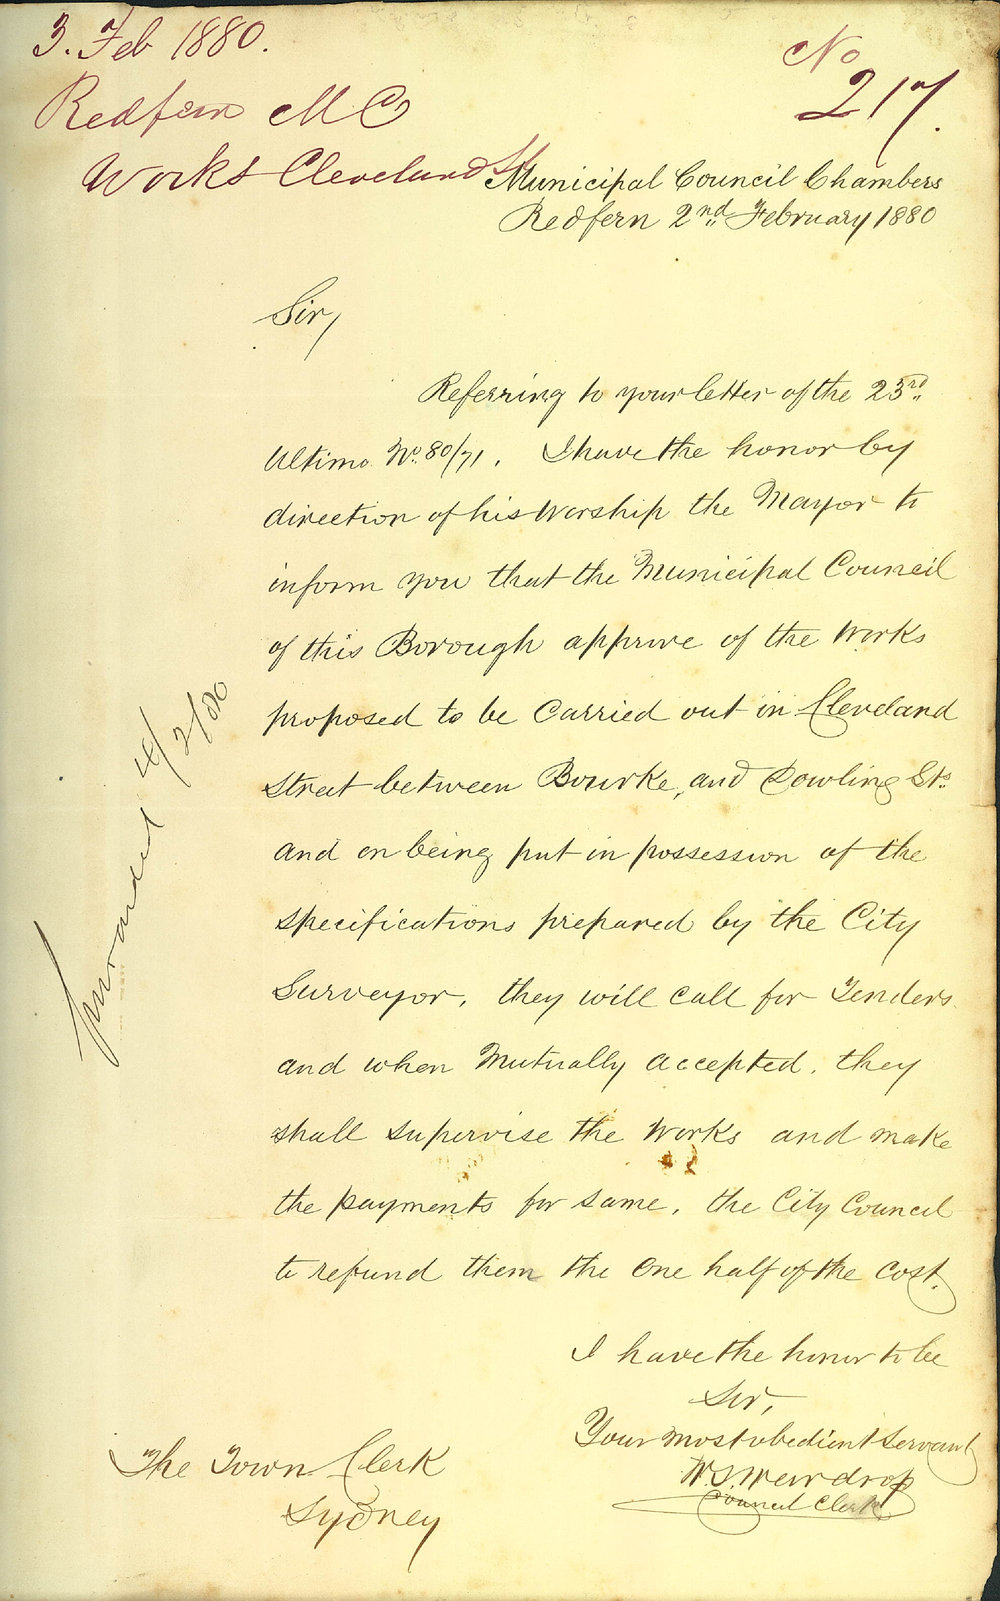 3. Feb 1880.
No
217.
Redfern M C
Works Cleveland St
Municipal Council Chambers
Redfern 2nd February 1880
Sir,
Referring to your letter of the 23rd
Ultimo No. 80/71. I have the honor by
direction of his Worship the Mayor to
inform you that the Municipal Council
of this Borough approve of the Works
proposed to be Carried out in Cleveland
Street between Bourke, and Dowling Sts.
and on being put in possession of the
specifications prepared by the City
Surveyor, they will call for Tenders
and when Mutually accepted, they
shall supervise the Works and make
the payments for same, the City Council
to refund them the One half of the Cost.
I have the honor to be
Sir,
Your most obedient Servant
Council Clerk
The Town Clerk
Sydney
/2/80